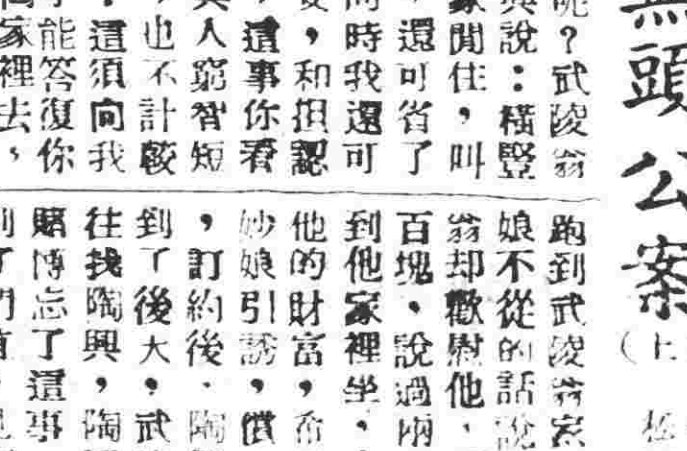 無頭公案（上
呢？武陵翁
興說：橫豎
家閒住，叫
還可省了
時我還可
，和担認
，這事你看
人窮智短
，也不計較
這須向我
能答復你
家裡去，
跑到武陵翁家
娘不從的話說
翁却歡慰他，
百塊，說過兩
到他家裡坐，
他的財富，
妙娘引誘，償
，訂約後，陶
到了後大，武
往找陶興，陶
賭博忘了這事
到了門